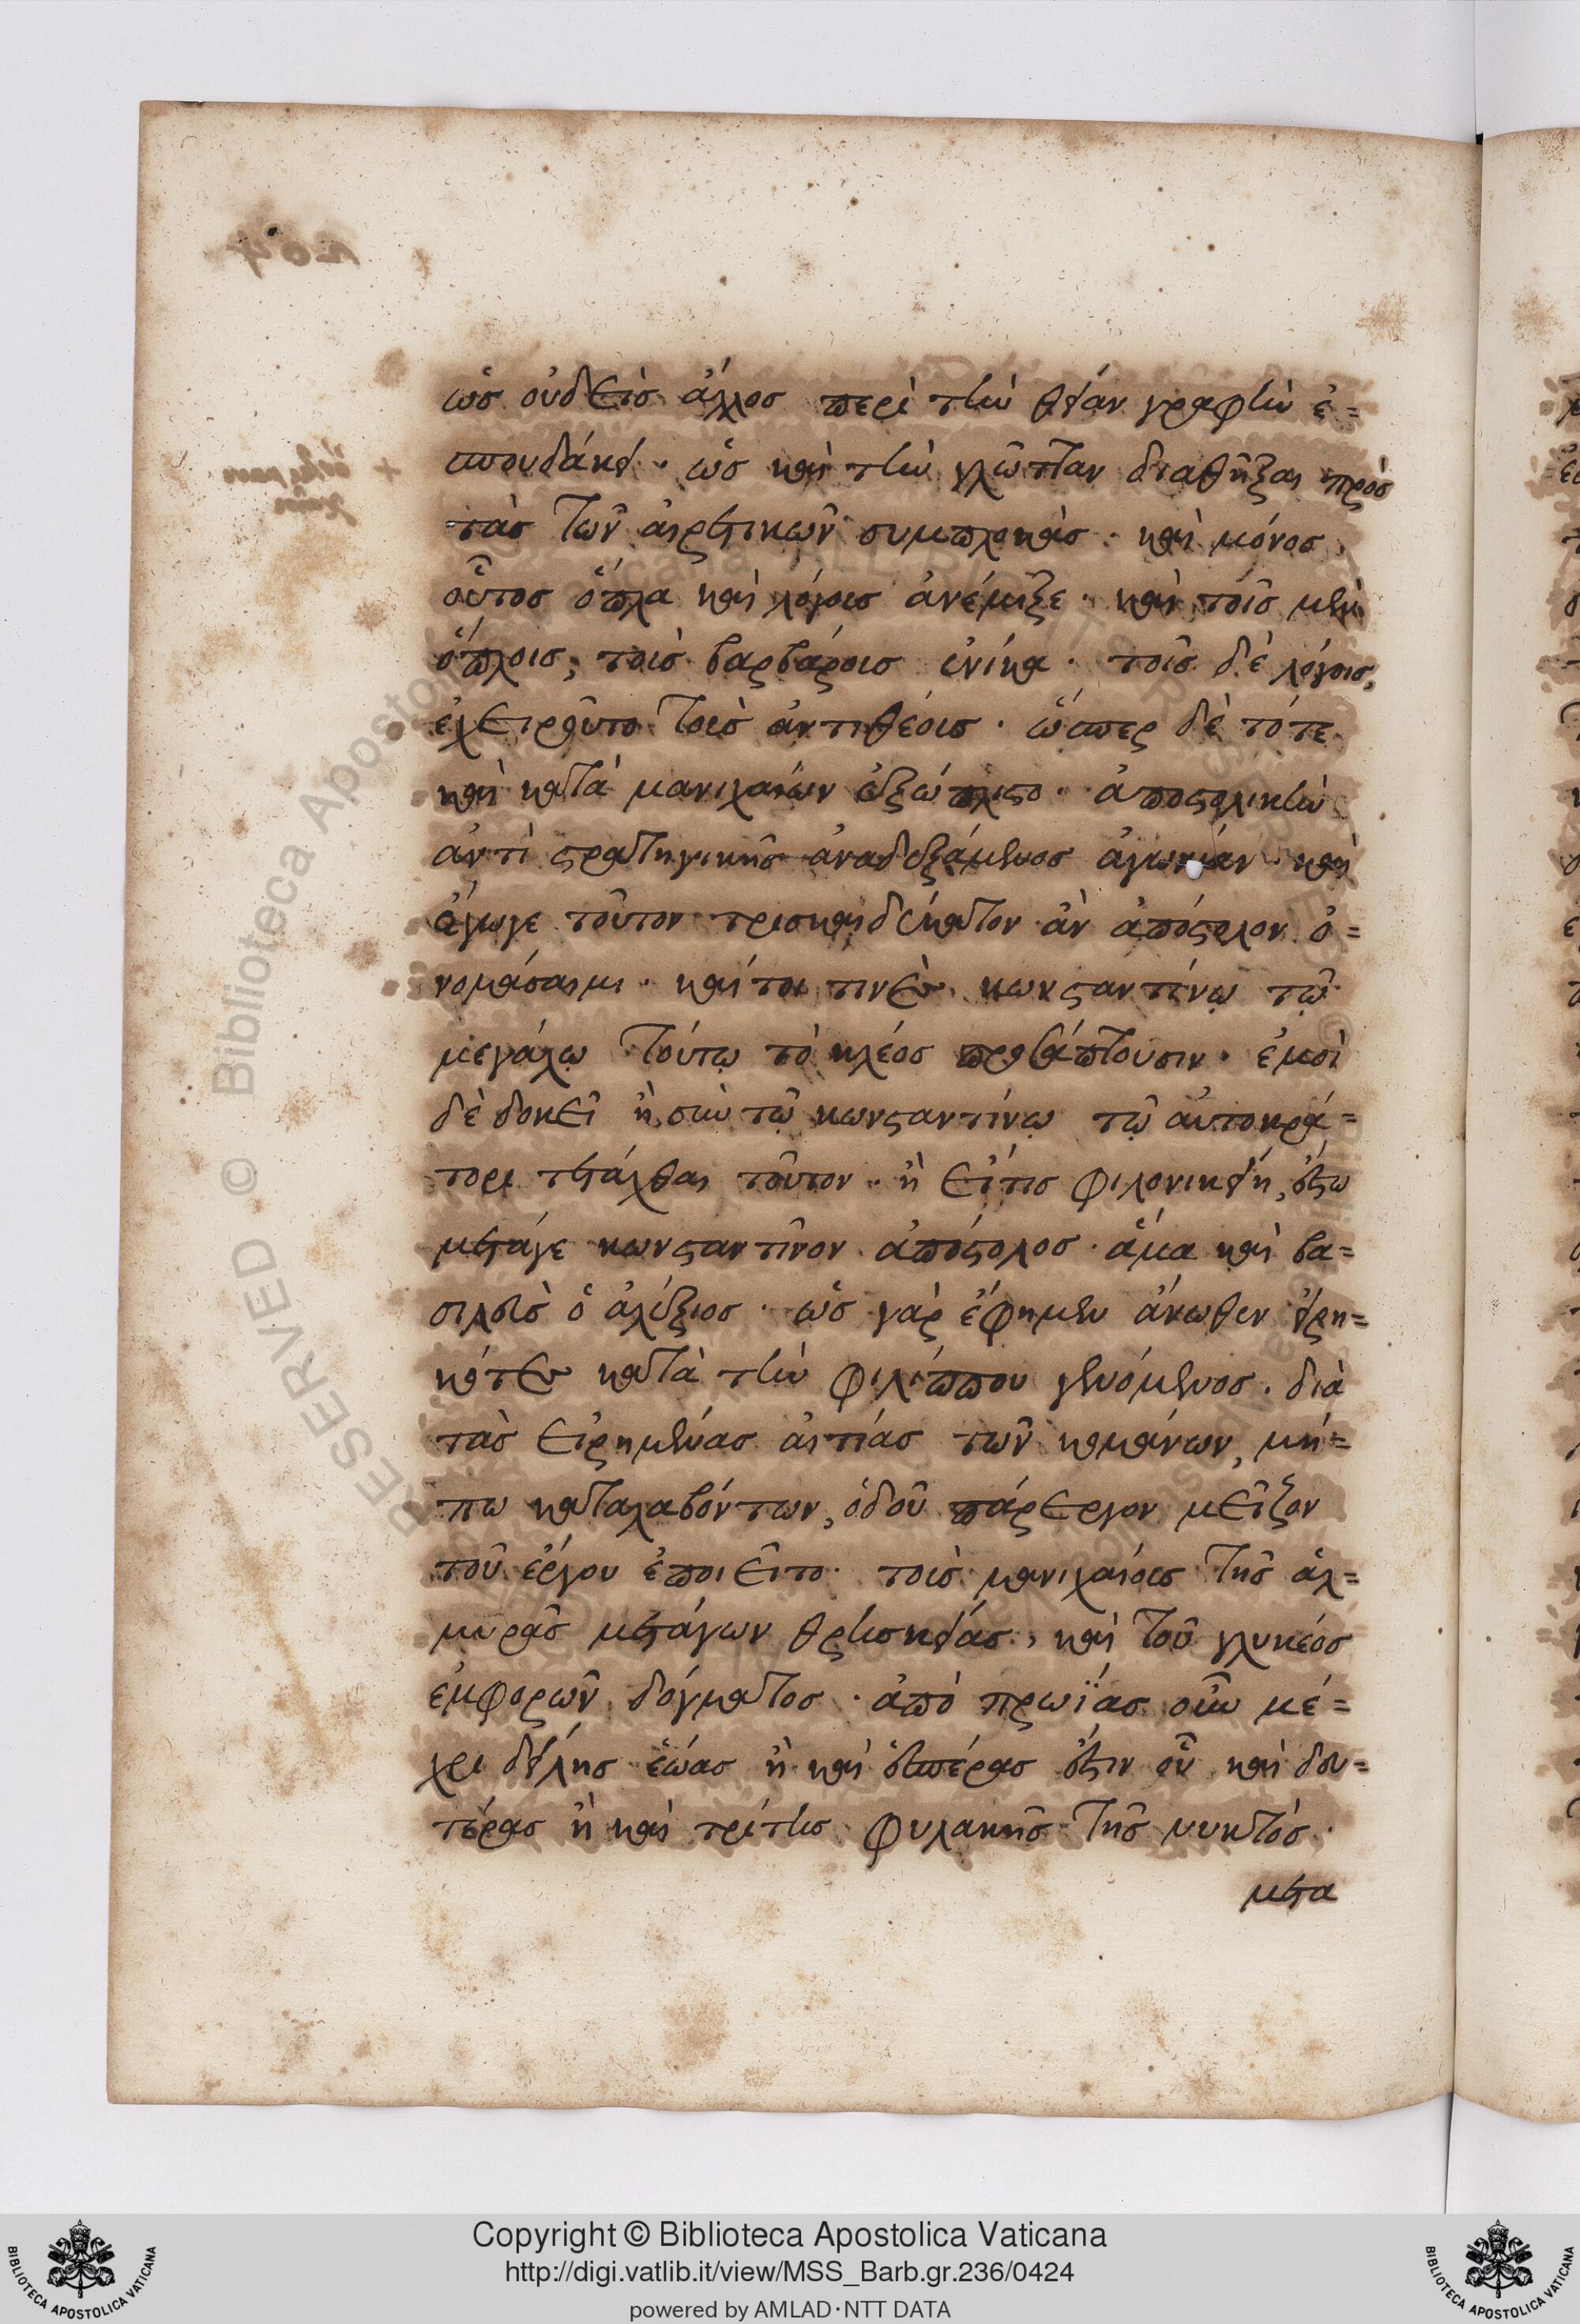 ὡς οὐδεὶς ἄλλος περὶ τὴν θείαν γραφὴν ἐ=
σπουδάκει· ὡς καὶ τὴν γλῶτταν διαθῆξαι πρὸς
τὰς τῶν αἱρετικῶν συμπλοκάς· καὶ μόνος
οὗτος ὅπλα καὶ λόγοις ἀνέμιξε· καὶ τοῖς μὲν
ὅπλοις, τοὺς βαρβάροις ἐνίκα· τοῖς δὲ λόγοις,
ἐχειροῦτο τοὺς ἀντιθέοις· ὥσπερ δὲ τότε
καὶ κατὰ μανιχαίων ἐξώπλιστο· ἀποστολικὴν
ἀντὶ στρατηγικῆς ἀναδεξάμενος ἀγωνίαν· καὶ
ἔγωγε τοῦτον τρισκαιδέκατον ἂν ἀπόστολον ὀ=
νομάσαιμι· καίτοι τινὲς κωνσταντίνῳ τῷ
μεγάλῳ τούτῳ τὸ κλέος προσάπτουσιν· ἐμοὶ
δὲ δοκεῖ ἢ σὺν τῷ κωνσταντίνῳ τῷ αὐτοκρά=
τορι τετάχθαι τοῦτον· ἢ εἴτις φιλονικείη, ἔστω
μετάγε κωνσταντῖνον ἀπόστολος· ἅμα καὶ βα=
σιλεὺς ὁ ἀλέξιος· ὡς γὰρ ἔφημεν ἄνωθεν εἰρη=
κότες κατὰ τὴν φιλίππου γενόμενος· διὰ
τὰς εἰρημένας αἰτίας τῶν κομάνων, μή=
πω καταλαβόντων, ὁδοῦ πάρεργον μεῖζον
τοῦ ἔργου ἐποιεῖτο· τοὺς μανιχαίοις τῆς ἁλ=
μυρᾶς μετάγων θρησκείας, καὶ τοῦ γλυκέος
ἐμφορῶν δόγματος· ἀπὸ πρωΐας οὖν μέ=
χρι δείλης ἑῴας ἢ καὶ ἑσπέρας ἔστιν οὗ καὶ δευ=
τέρας ἢ καὶ τρίτης φυλακῆς τῆς νυκτός·
μετα
Copyright © Biblioteca Apostolica Vaticana
http://digi.vatlib.it/view/MSS_Barb.gr.236/0424
powered by AMLAD·NTT DATA